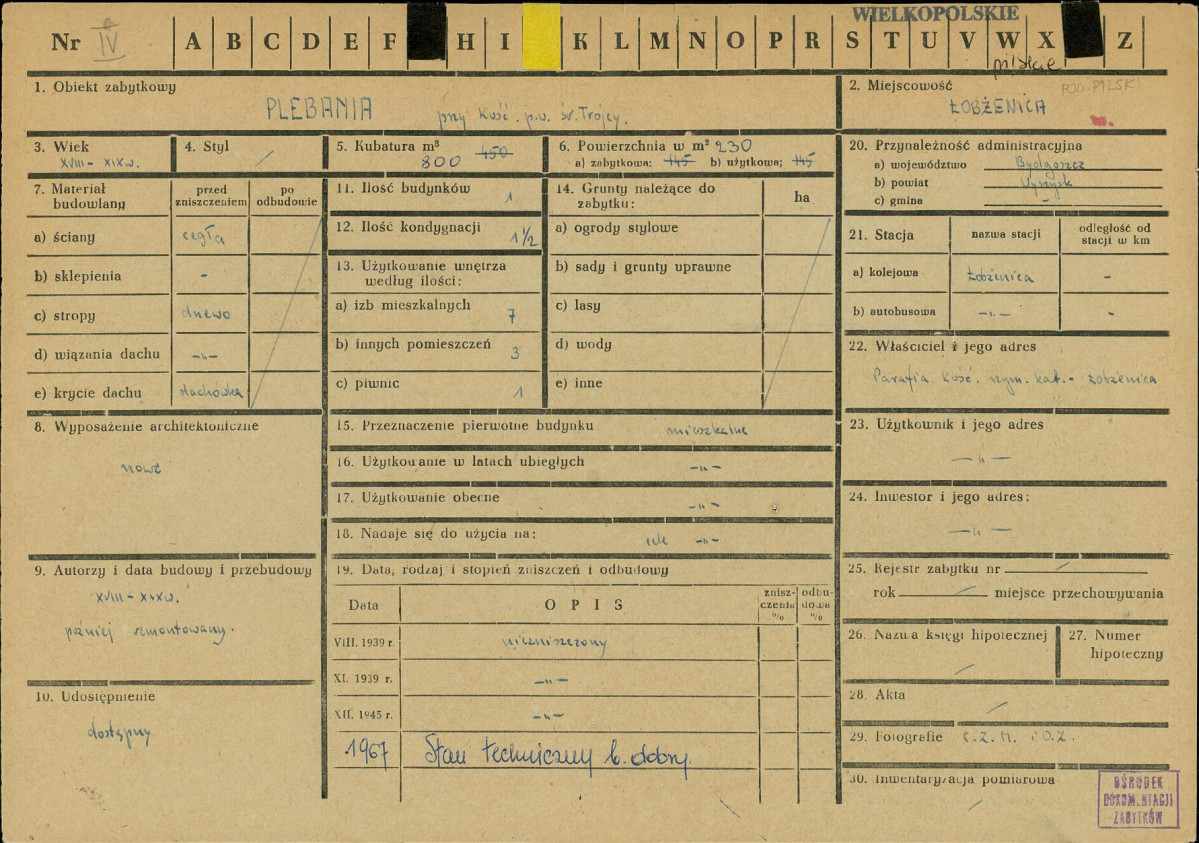 WIELKOPOLSKIE
Nr IV A B C D E F H I K L M N O P R S T U V W X Z
pilskie
1. Obiekt zabytkowy
PLEBANIA przy Kość. p.w. św. Trójcy.
2. Miejscowość
ŁOBŻENICA
3. Wiek
XVIII - XIX w.
4. Styl
/
5. Kubatura m³
800 450
6. Powierzchnia w m² 230
a) zabytkowa: 145 b) użytkowa; 145
7. Materiał budowlany
przed zniszczeniem
po odbudowie
a) ściany cegła
b) sklepienia -
c) stropy drewo
d) wiązania dachu -„-
e) krycie dachu dachówka
8. Wyposażenie architektoniczne
nowe
9. Autorzy i data budowy i przebudowy
XVIII - XIX w.
później remontowany.
10. Udostępnienie
dostępny
11. Ilość budynków 1
12. Ilość kondygnacji 1 1/2
13. Użytkowanie wnętrza
według ilości:
a) izb mieszkalnych 7
b) innych pomieszczeń 3
c) piwnic 1
14. Grunty należące do
zabytku:
ha
a) ogrody stylowe
b) sady i grunty uprawne
c) lasy
d) wody
e) inne
15. Przeznaczenie pierwotne budynku mieszkalne
16. Użytkowanie w latach ubiegłych -„-
17. Użytkowanie obecne -„-
18. Nadaje się do użycia na: cele -„-
19. Data, rodzaj i stopień zniszczeń i odbudowy
Data OPIS znisz-czenia % odbu-dowa %
VIII. 1939 r. niezniszczony
XI. 1939 r. -„-
XII. 1945 r. -„-
1967 Stan techniczny b. dobry.
20. Przynależność administracyjna
a) województwo Bydgoszcz
b) powiat Wyrzysk
c) gmina -
21. Stacja
nazwa stacji
odległość od
stacji w km
a) kolejowa Łobżenica -
b) autobusowa -„- -
22. Właściciel i jego adres
Parafia Kość. rzym. kat. - Łobżenica
23. Użytkownik i jego adres
-„-
24. Inwestor i jego adres:
-„-
25. Rejestr zabytku nr /
rok / miejsce przechowywania
26. Nazwa księgi hipotecznej
/
27. Numer
hipoteczny
28. Akta /
29. Fotografie C.Z.M. i O.Z.
30. Inwentaryzacja pomiarowa
OŚRODEK
DOKUMENTACJI
ZABYTKÓW